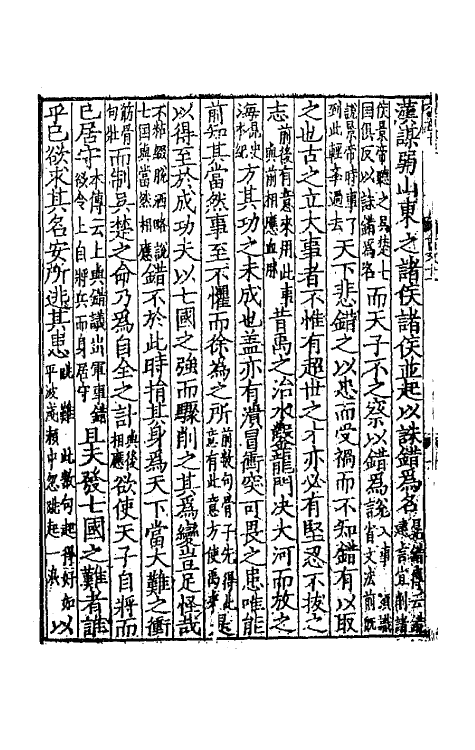 漢謀弱山東之諸侯諸侯並起以誅錯為名晁錯傳云錯數言宜削諸
侯景帝聽之吳楚七國俱反以誅錯為名而天子不之察以錯為說入事須識議省文法前既
說景帝時事了到此輕幸過去天下悲錯之以忠而受禍而不知錯有以取
之也古之立大事者不惟有超世之才亦必有堅忍不拔之
志前後有意來用此事與前相應血脉昔禹之治水鑿龍門决大河而放之
海禹史本紀方其功之未成也蓋亦有潰冒衝突可畏之患唯能
前知其當然事至不懼而徐為之所前數句骨子先得此意有此意方使禹事是
以得至於成功夫以七國之強而驟削之其為變豈足怪哉
不粹綴脫洒略說七國與當然相應錯不於此時捐其身為天下當大難之衝
筋骨句壯而制吳楚之命乃為自全之計與後相應欲使天子自將而
已居守本傳云上與錯議出軍事錯欲令上自將兵而身居守且夫發七國之難者誰
乎已欲求其名安所逃其患難此數句起得好如平波淺瀨中忽跳起一浪以